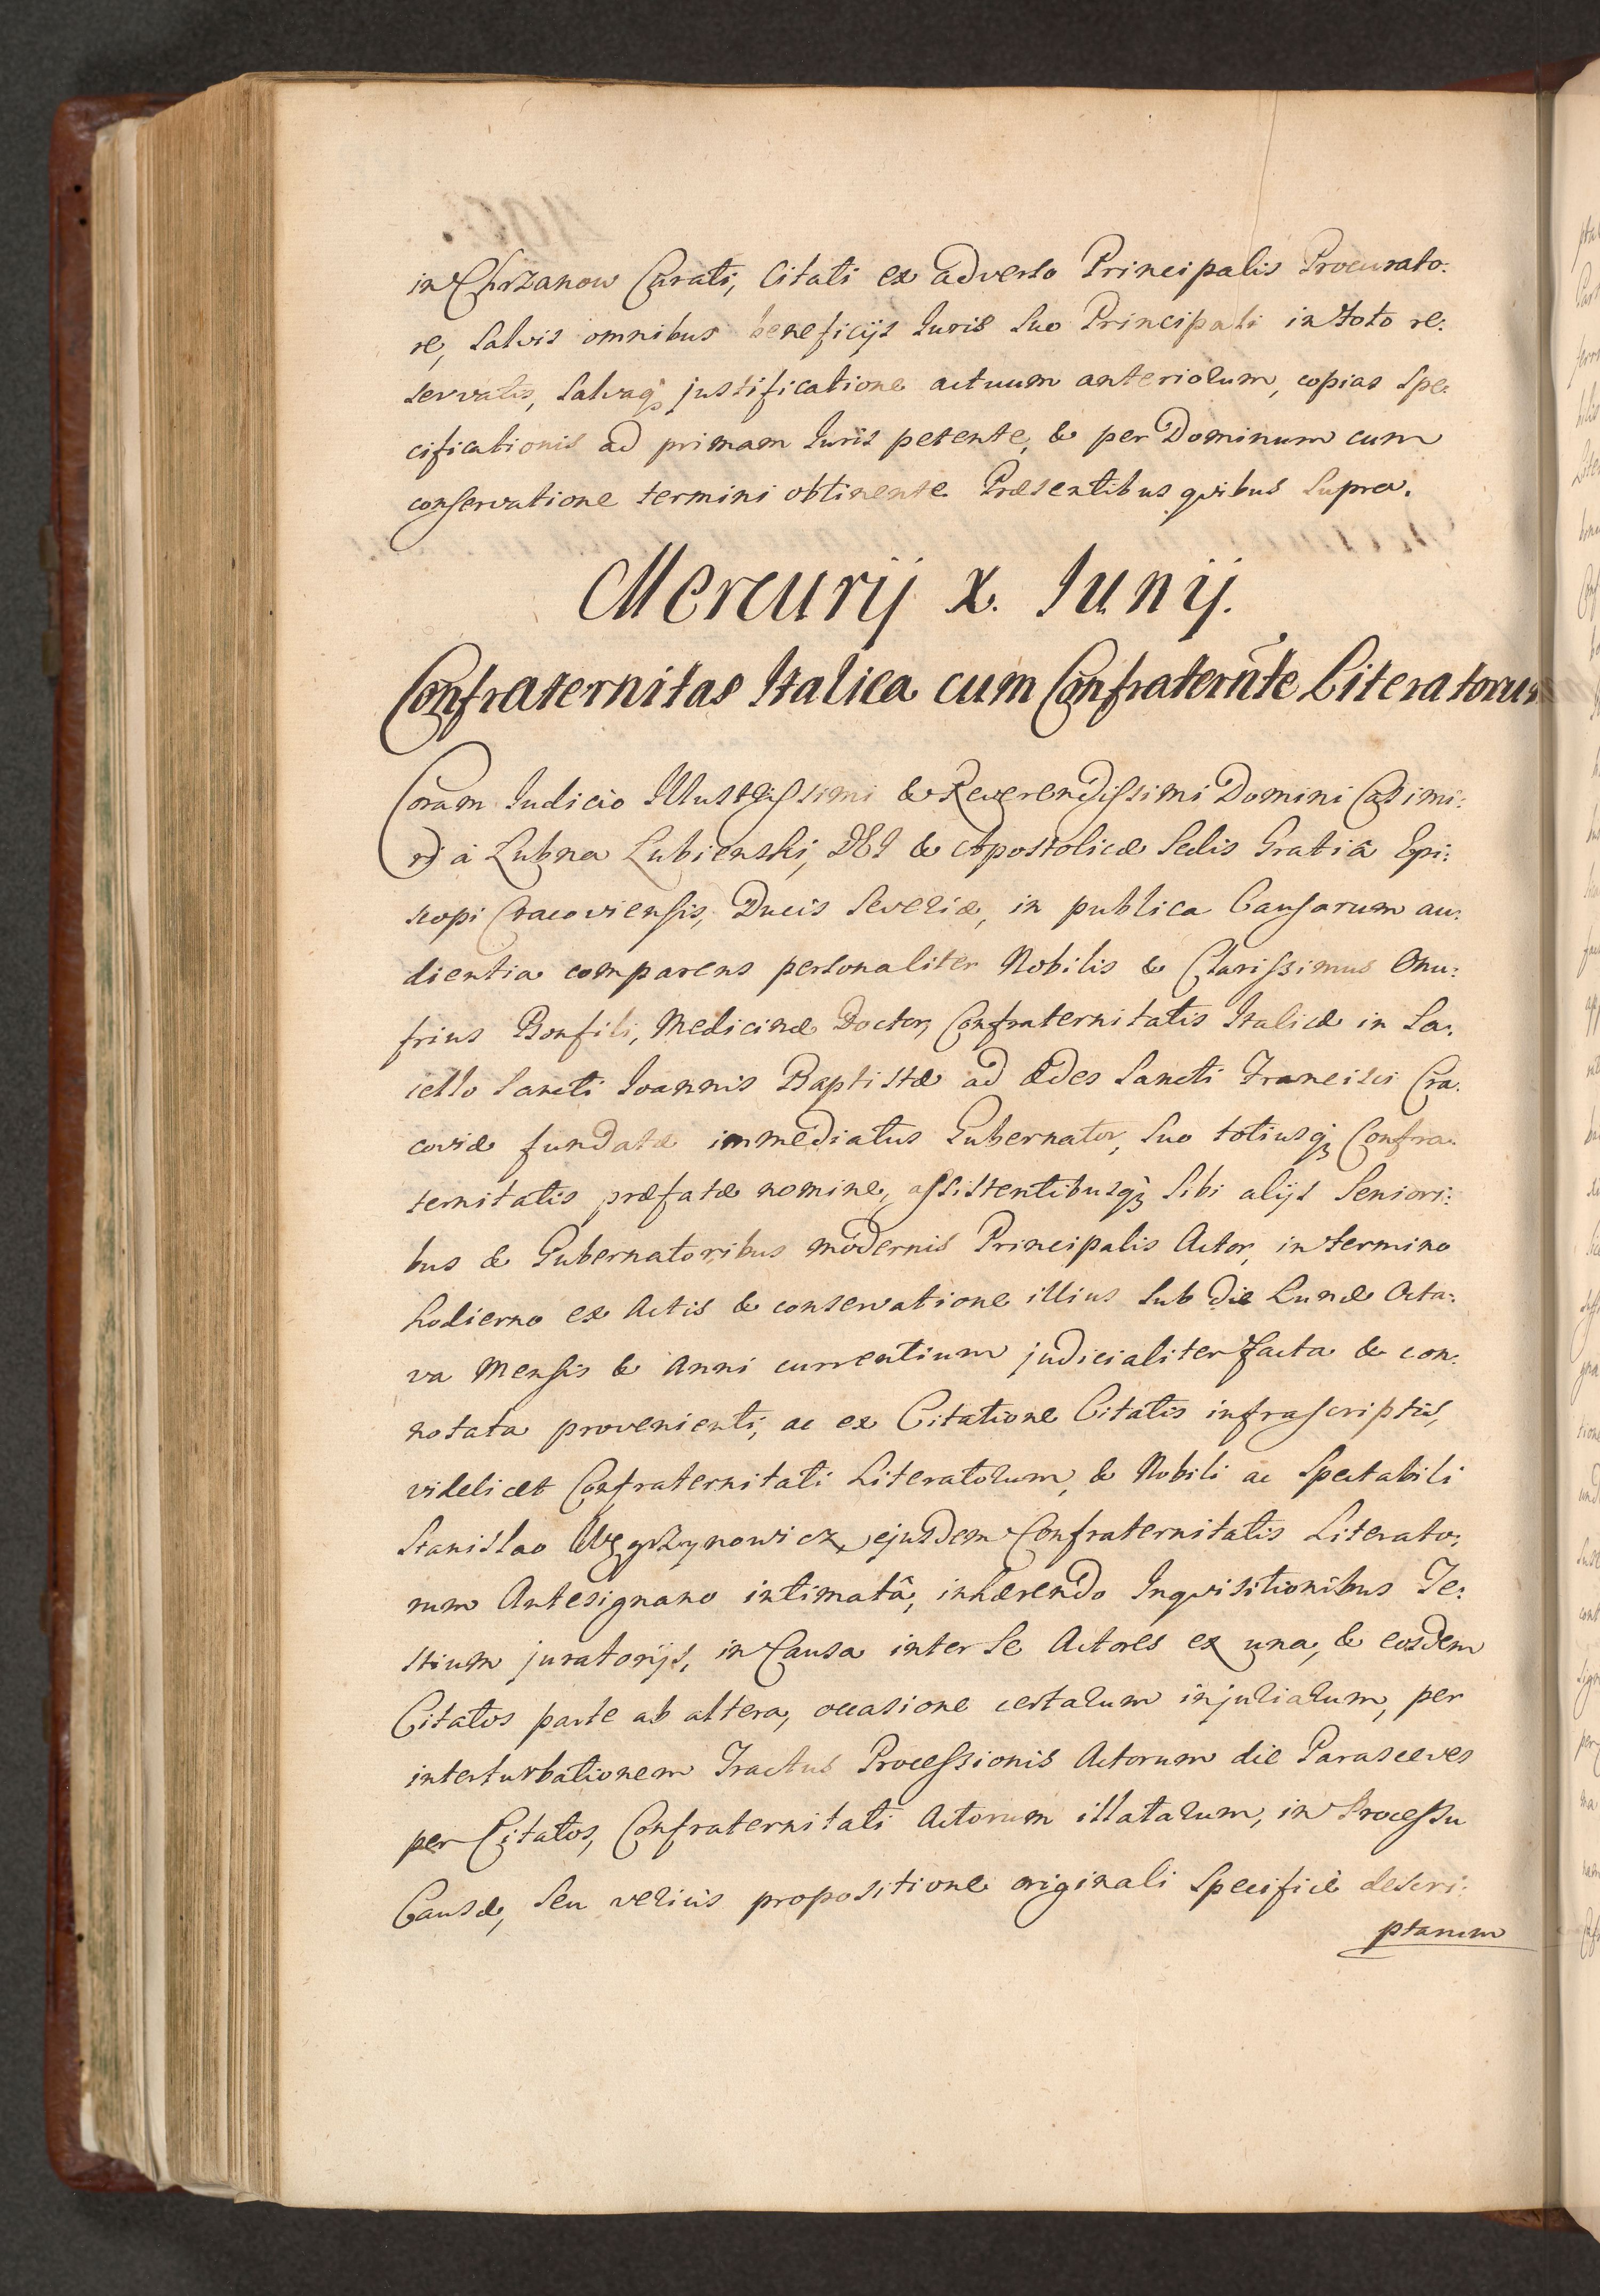 in Chrzanow Curati, Citati ex adverso Principalis Procurato:
re, salvis omnibus beneficijs Iuris suo Principali in toto re:
servatis, salvaq́; justificatione actuum anteriorum, copias spe:
cificationis ad primam Iuris petente, & per Dominum cum
conservatione termini obtinente. Præsentibus quibus supra.
Mercurij X. Iunij.
Confraternitas Italica cum Confraternĩte Literatorum
Coram Iudicio Illustrissimi & Reverendissimi Domini Casimi:
ri à Lubna Lubienski, DEI & Apostolicæ Sedis Gratiâ Epi:
scopi Cracoviensis, Ducis Severiæ, in publica Causarum au:
dientia comparens personaliter Nobilis & Clarissimus Onu:
frius Bonfili, Medicinæ Doctor, Confraternitatis Italicæ in Sa:
cello Sancti Ioannis Baptistæ ad Ædes Sancti Francisci Cra:
coviæ fundatæ immediatus Gubernator, suo totiusq́; Confra:
ternitatis præfatæ nomine, assistentibusq́; sibi alijs Seniori:
bus & Gubernatoribus modernis Principalis Actor, in termino
hodierno ex Actis & conservatione illius sub die Lunæ Octa:
va Mensis & Anni currentium judicialiter facta & con:
notata provenienti, ac ex Citatione Citatis infrascriptis,
videlicet Confraternitati Literatorum, & Nobili ac Spectabili
Stanislao Węgrzynowicz, ejusdem Confraternitatis Literato:
rum Antesignano intimatâ, inhærendo Inquisitionibus Te:
stium juratorijs, in Causa inter se Actores ex una, & eosdem
Citatos parte ab altera, occasione certarum injuriarum, per
interturbationem Tractus Processionis Actorum die Parasceves
per Citatos, Confraternitati Actorum illatarum, in Processu
Causæ, seu veriùs propositione originali specificè descri:
ptarum